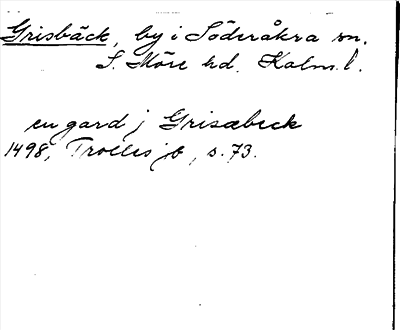 Grisbäck, by i Söderåkra sn.
S. Möre hd. Kalm. l.
en gard j Grisabeck
1498, Trolles jb, s. 73.